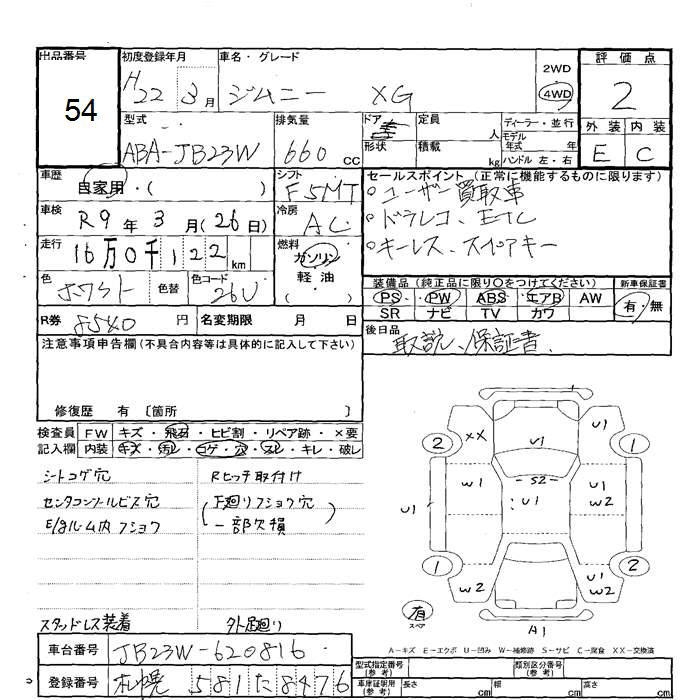 出品番号
54
初度登録年月
H22 3月
車名・グレード
ジムニー XG
2WD
4WD
評価点
2
外装 内装
E C
型式
ABA-JB23W
排気量
660 cc
ドア
形状
定員 人
積載 kg
ディーラー・並行
モデル年式 年
ハンドル 左・右
車歴
自家用・( )
シフト
F5MT
車検
R9年3月(26日)
冷房
AC
走行
16万0千122km
燃料
ガソリン
軽油
( )
色
ホワイト
色替
色コード
26U
R券 8540円
名変期限 月 日
セールスポイント(正常に機能するものに限ります)
○ユーザー買取車
○ドラレコ、ETC
○キーレス、スペアキー
装備品(純正品に限り○をつけてください)
PS PW ABS エアB AW
SR ナビ TV カワ
新車保証書
有・無
後日品
取説、保証書
注意事項申告欄(不具合内容等は具体的に記入して下さい)
修復歴 有 〔箇所 〕
検査員 FW キズ・飛石・ヒビ割・リペア跡・×要
記入欄 内装 キズ・汚レ・コゲ・穴・スレ・キレ・破レ
シートコゲ穴
センタコンソールビス穴
E/gルーム内フショウ
スタッドレス装着
Rヒッチ取付け
(下廻りフショウ穴
一部欠損)
外足廻り
XX U1
2 1
S2
W1 U1 U1
W2
U1
1 2
W2 U1
W2
有
スペア
A1
A-キズ E-エクボ U-凹み W-補修跡 S-サビ C-腐食 XX-交換済
車台番号 JB23W-620816
登録番号 札幌 581た8476
型式指定番号(参考)
類別区分番号(参考)
車庫証明用(参考) 長さ cm 幅 cm 高さ cm